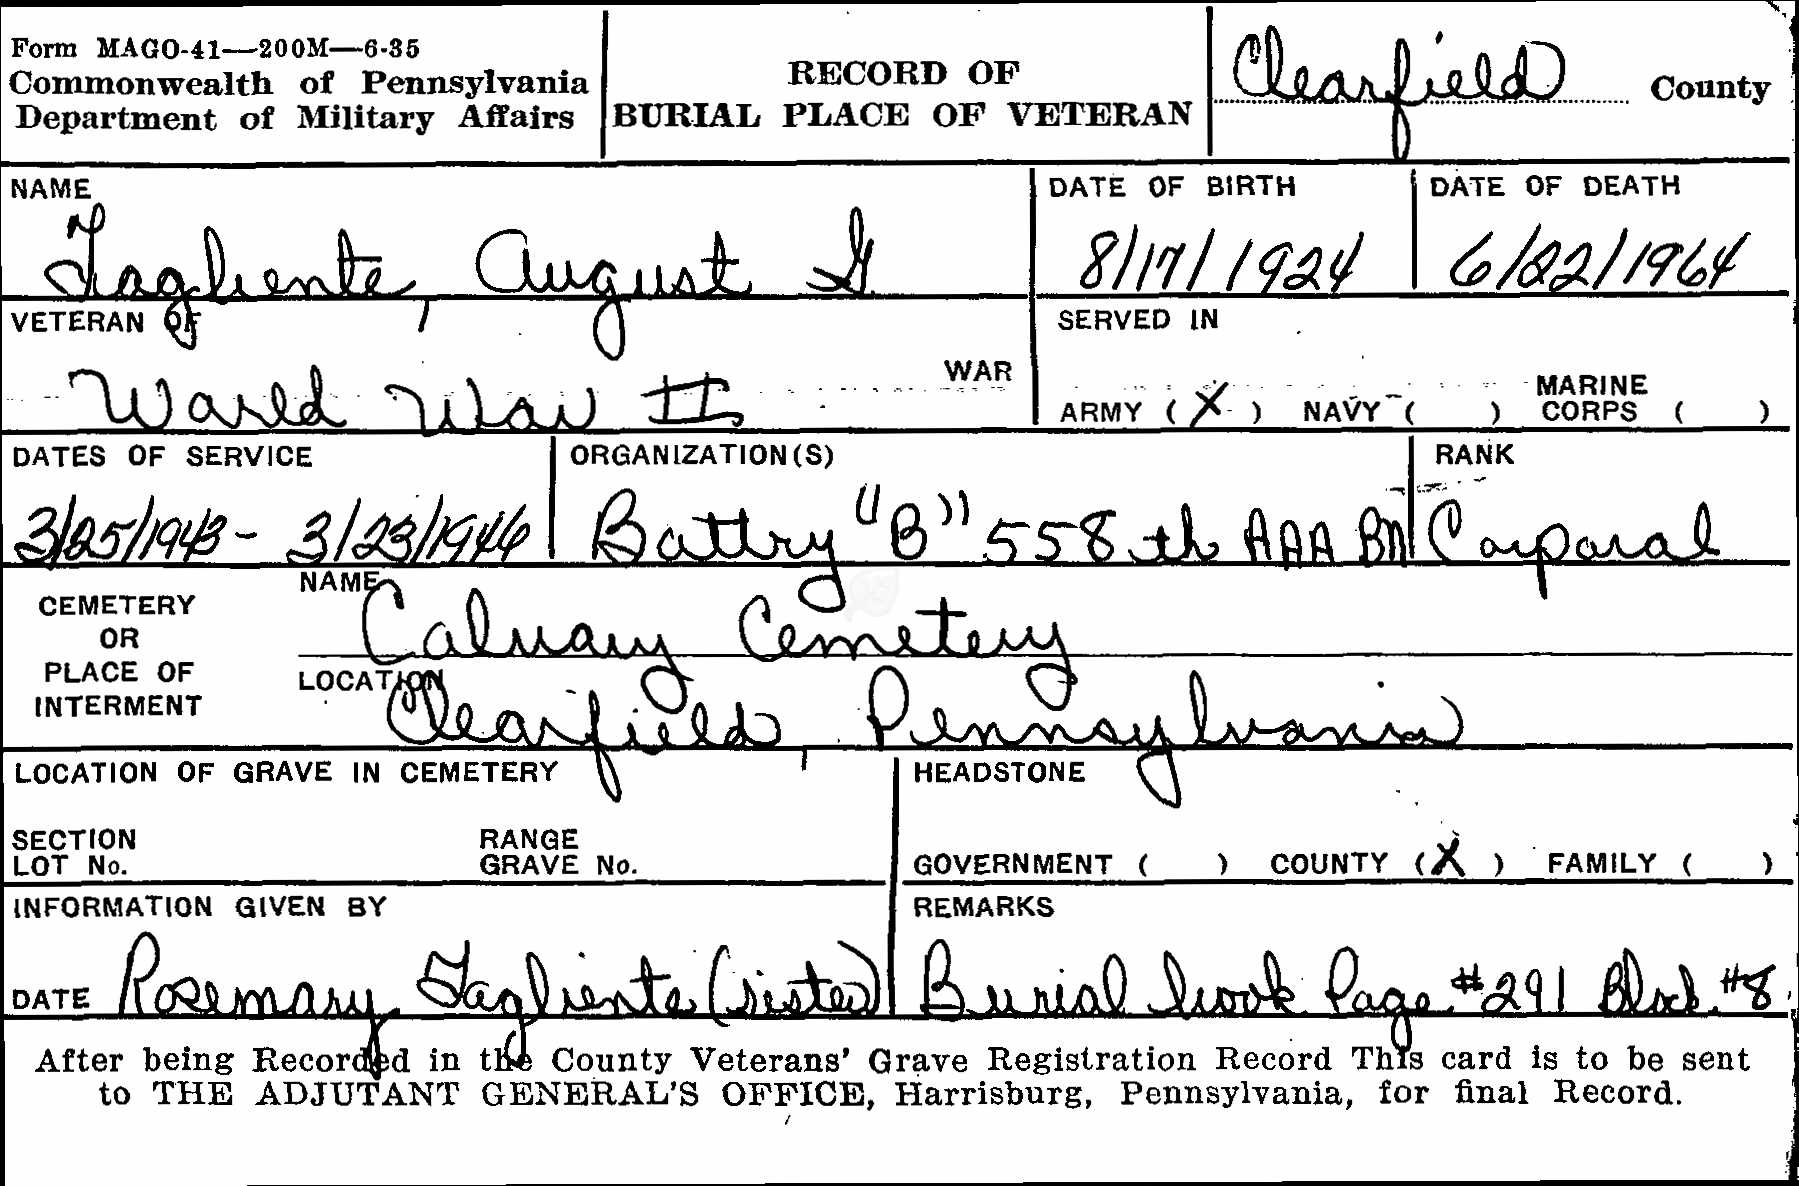 Form MAGO-41—200M—6-35
Commonwealth of Pennsylvania
Department of Military Affairs
RECORD OF
BURIAL PLACE OF VETERAN
Clearfield County
NAME
Tagliente, August G
DATE OF BIRTH
8/17/1924
DATE OF DEATH
6/22/1964
VETERAN OF
World War II WAR
SERVED IN
ARMY (X) NAVY ( ) MARINE CORPS ( )
DATES OF SERVICE
3/25/1943 - 3/23/1946
ORGANIZATION(S)
Battry "B" 558th AAA BN
RANK
Corporal
CEMETERY
OR
PLACE OF
INTERMENT
NAME
Calvary Cemetery
LOCATION
Clearfield, Pennsylvania
LOCATION OF GRAVE IN CEMETERY
SECTION RANGE
LOT No. GRAVE No.
HEADSTONE
GOVERNMENT ( ) COUNTY (X) FAMILY ( )
INFORMATION GIVEN BY
DATE Rosemary Tagliente (sister)
REMARKS
Burial book Page #291 Block #8
After being Recorded in the County Veterans' Grave Registration Record This card is to be sent
to THE ADJUTANT GENERAL'S OFFICE, Harrisburg, Pennsylvania, for final Record.